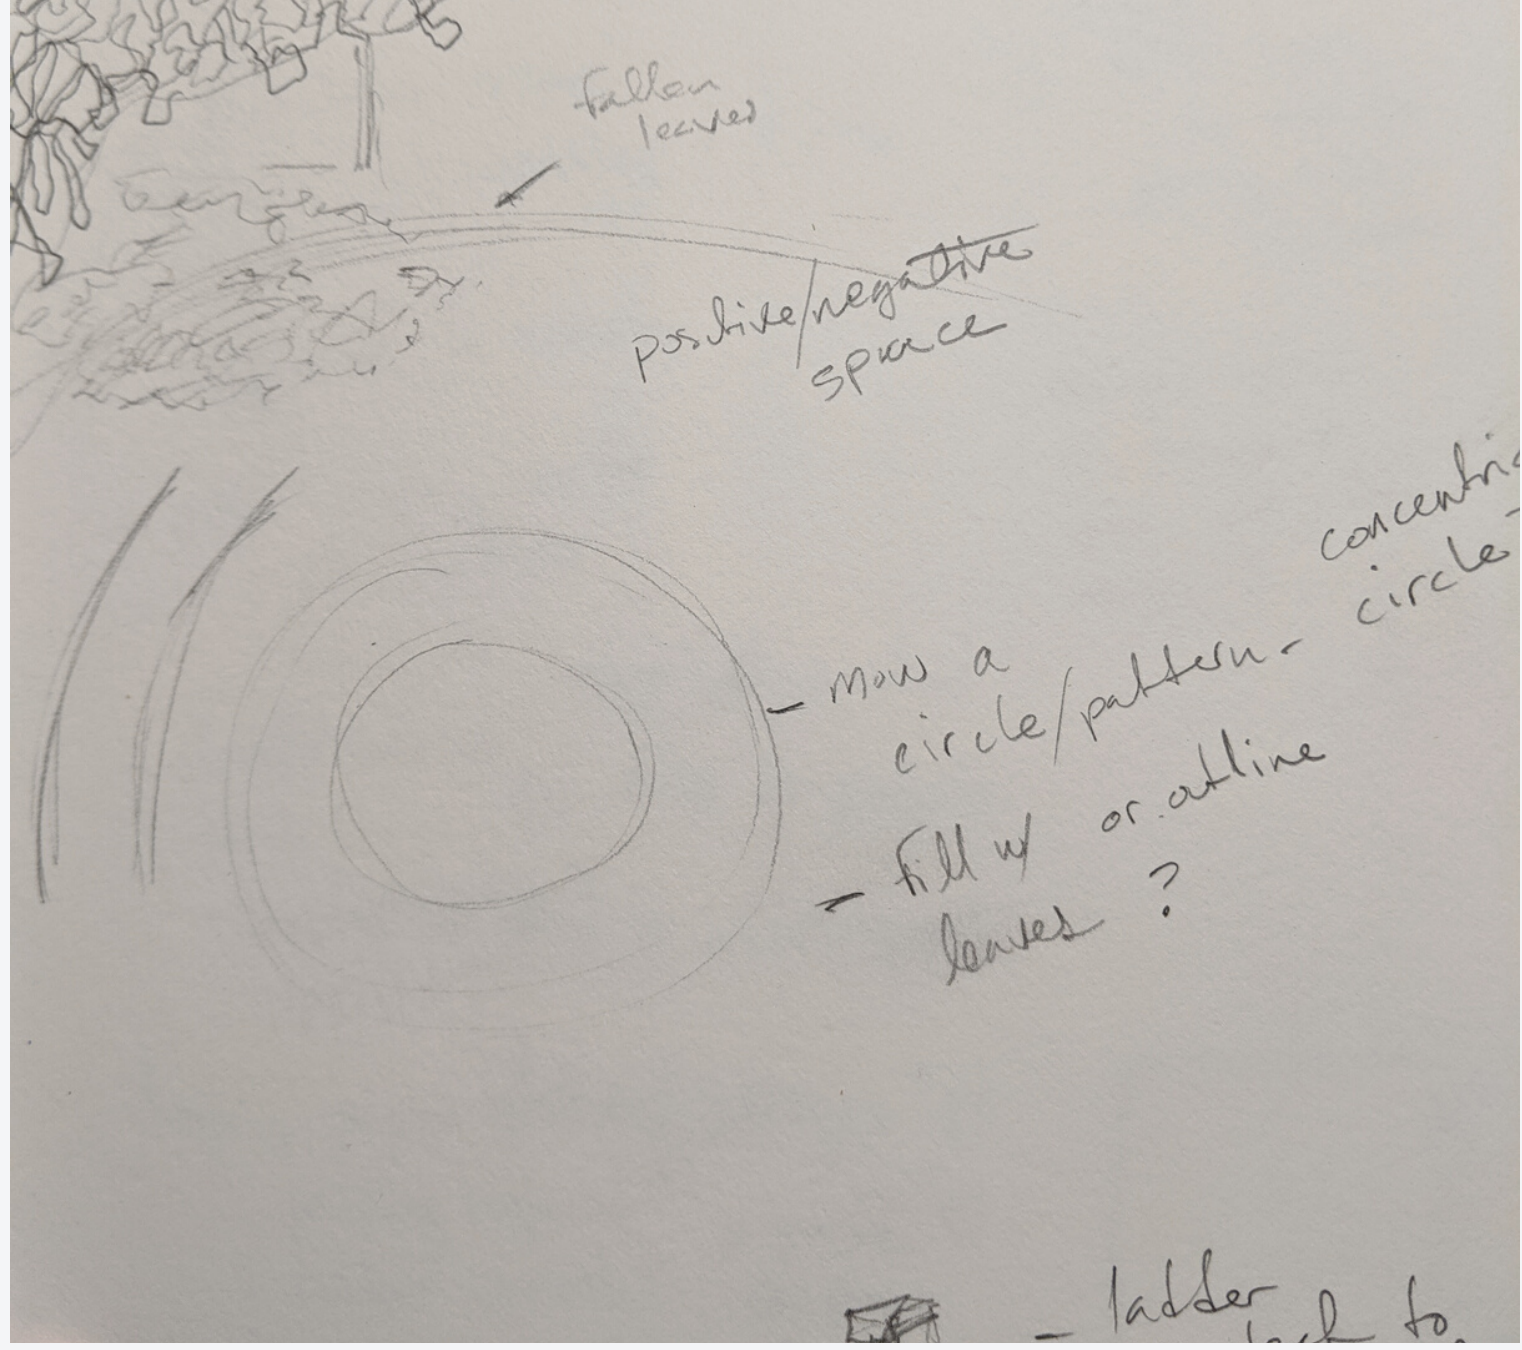 fallen
leaves
positive/negative
space
concentric
circle
- mow a
circle/pattern -
- fill w/ or outline
leaves ?
- ladder
to